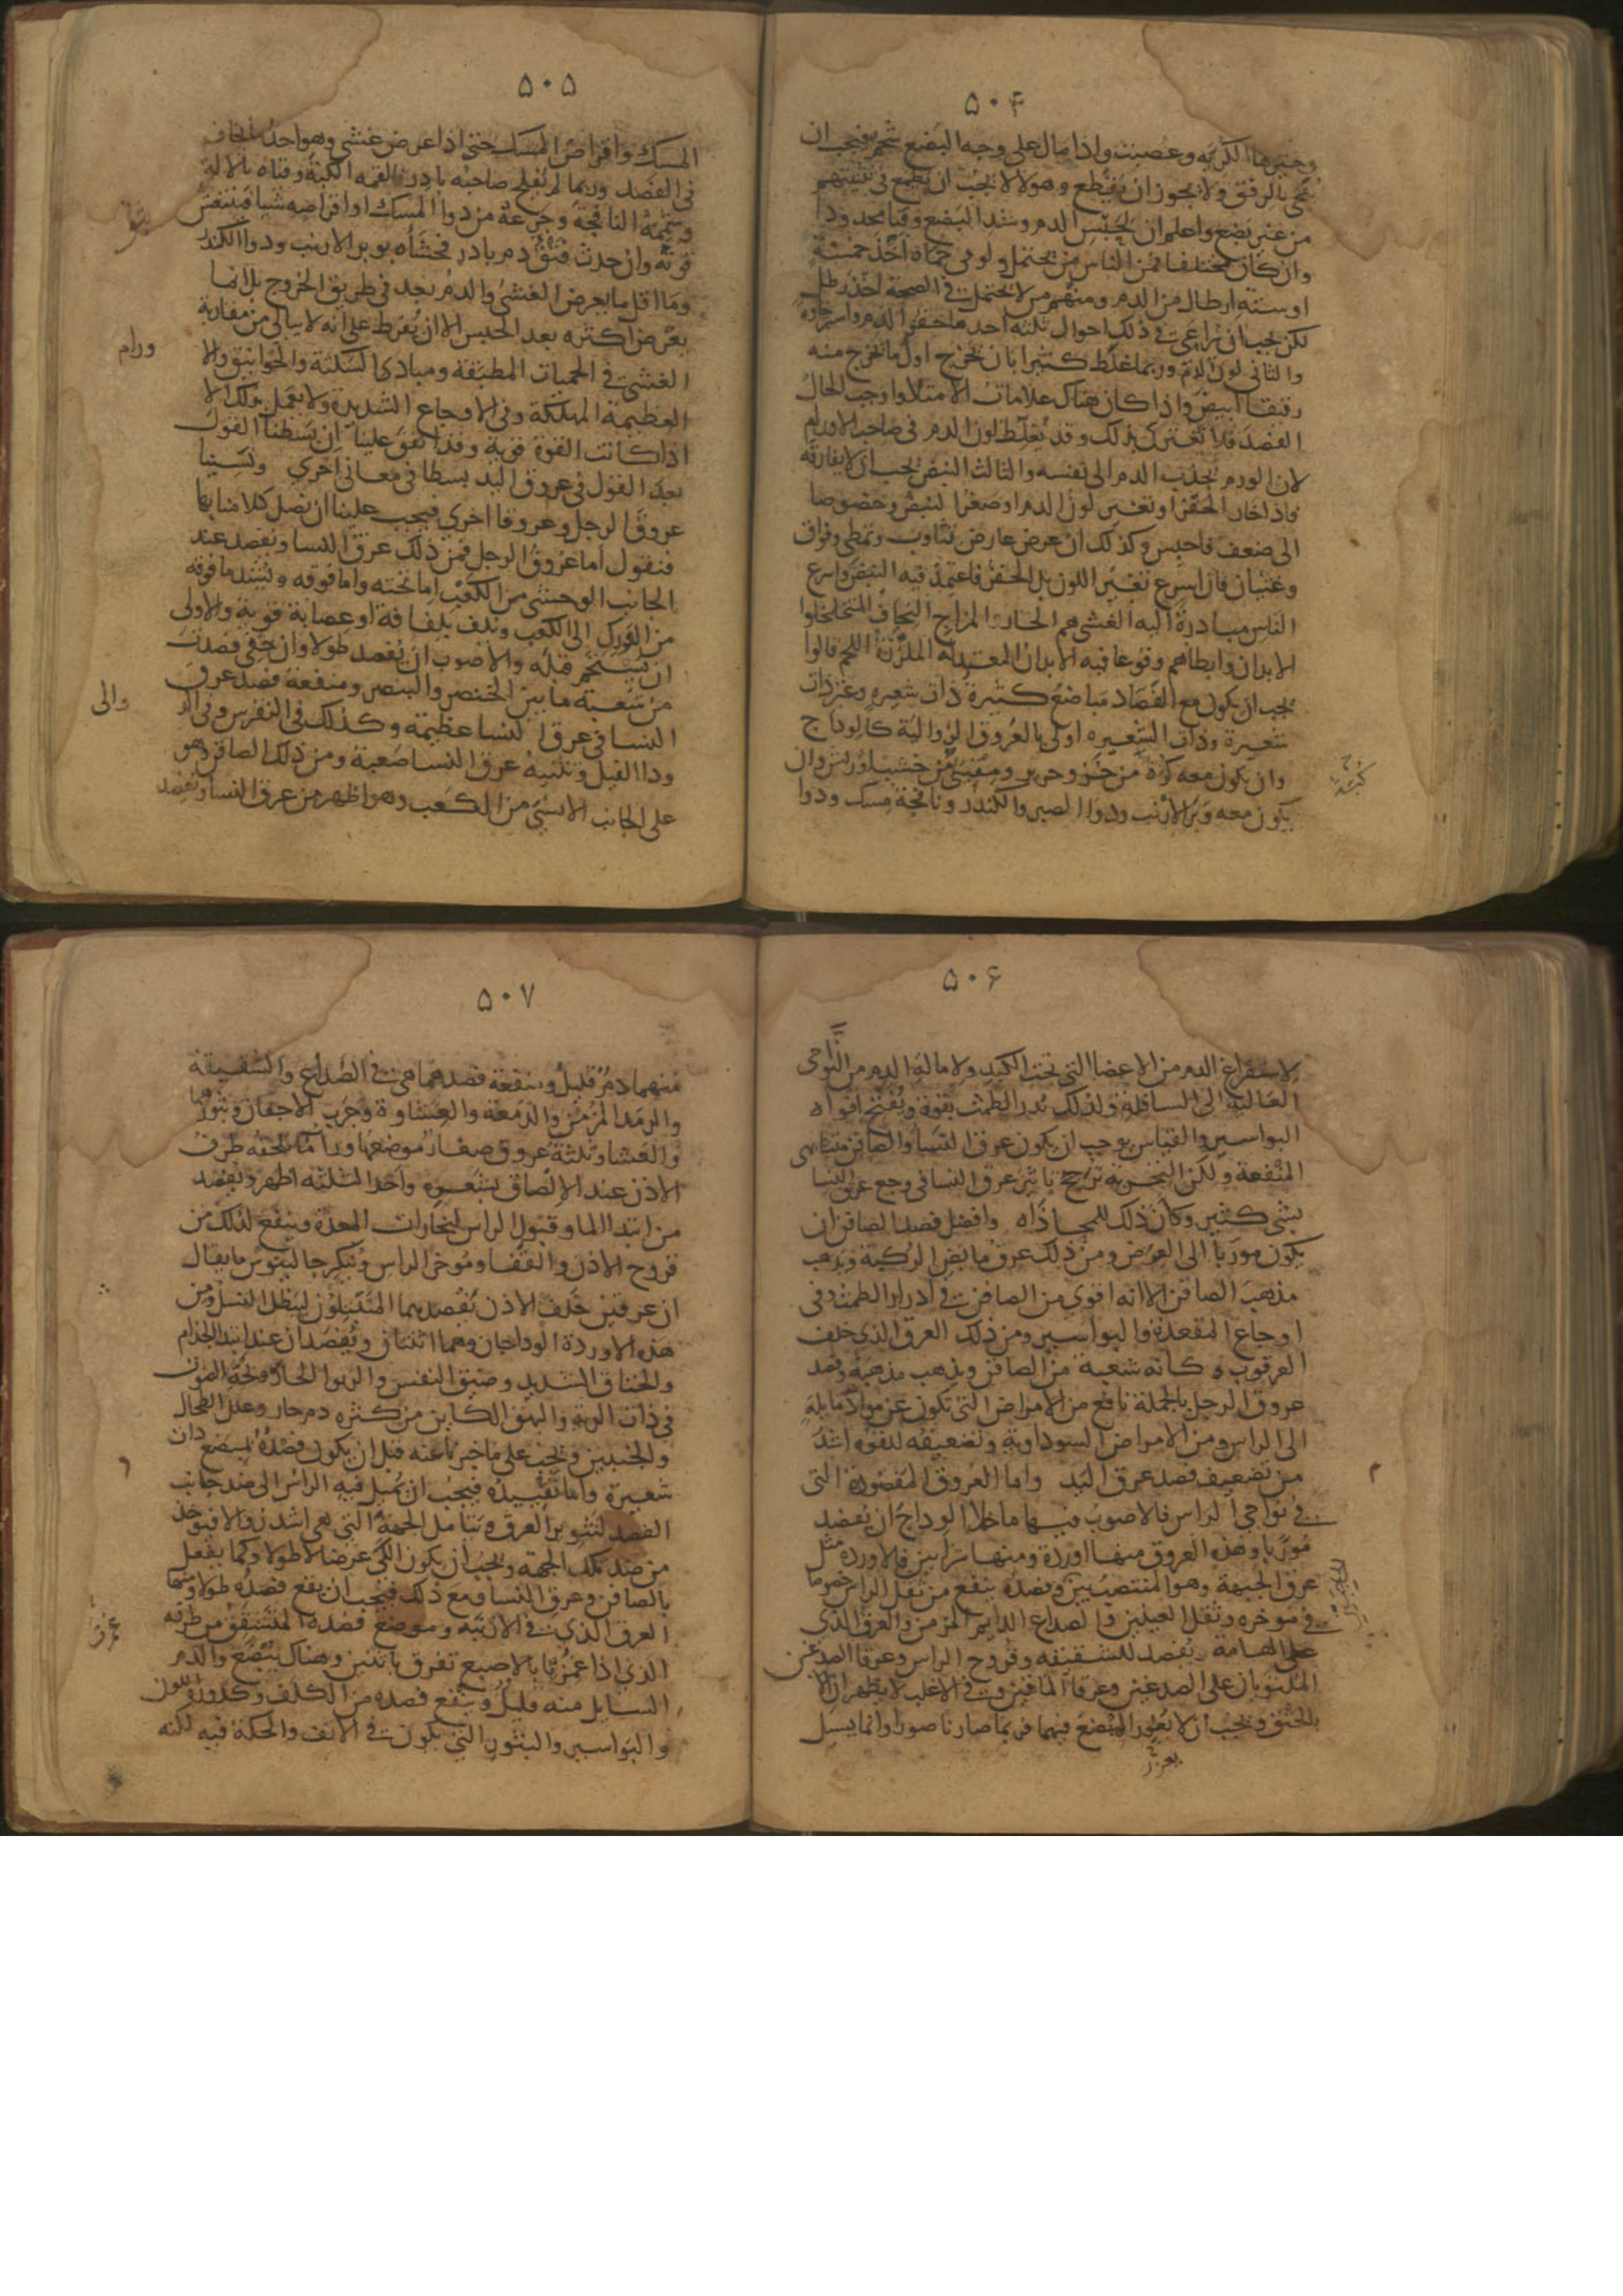 ۵۰۴
وخيرها الكرية وعصبت واذا مال على وجه البضع شحم فيجب ان
ينحى بالرفق ولا يجوز ان يقطع وهولا لا يجب ان يطمع في تثنيتهم
من غير بضع واعلم ان لحبس الدم وشد البضع وقتا محدودا
وان كان مختلفا فمن الناس من يحتمل ولو في حماه اخذ خمسة
او ستة ارطال من الدم ومنهم من لا يحتمل في الصحة اخذ رطل
لكن يجب ان تراعى في ذلك احوال ثلثه احدها حفز الدم واسترخاوه
والثاني لون الدم وربما غلط كثيرا بان يخرج اول ما يخرج منه
رقيقا ابيض واذا كان هناك علامات الامتلا واوجب الحال
الفصد فلا تغترن بذلك وقد يغلظ لون الدم في صاحب الاورام
لان الورم يجذب الدم الى نفسه والثالث النبض يجب ان لا يفارقه
فاذا خار الحفز او تغير لون الدم او صغر النبض وخصوصا
الى ضعف فاحبس وكذلك ان عرض عارض تثاوب وتمطي وفواق
وغثيان فان اسرع تغير اللون بل الحفز فاعتمد فيه النبض واسرع
الناس مبادرة اليه الغشي هم الحارو المزاج النحاف المتخلخلوا
الابدان وابطاهم وقوعا فيه الابدان المعتدلة الملززة اللحم قالوا
يجب ان يكون مع الفصاد مباضع كثيرة ذات شعيرة وغير ذات
شعيرة وذات الشعيره اولى بالعروق الزوالة كالوداج
وان يكون معه كرة من خز وحرير ومقيئ من خشب او ريش وان
يكون معه وبر الارنب ودوا الصبر والكندر ونافجة مسك ودوا
كبة
۵۰۵
المسك واقراص المسك حتى اذا عرض غشي وهو احد ما يخاف
في الفصد وربما لم يفلح صاحبه بادر فالقمه الكبة وقياه بالالة
وشممه النافجة وجرعه من دوا المسك او اقراصه شيا فتنتعش
قوته وان حدث فتق دم بادر فحشاه بوبر الارنب ودوا الكندر
وما اقل ما يعرض الغشي والدم بعد في طريق الخروج بل انما
يعرض اكثره بعد الحبس الا ان يفرط على انه لا يبالي من مقاربة
الغشي في الحميات المطبقة ومبادي السكتة والخوانيق والا
ورام
العظيمة المهلكة وفي الاوجاع الشديدة ولا يعمل بذلك الا
اذا كانت القوة قوية وقد اتفق علينا ان بسطنا القول
بعد القول في عروق اليد بسطا في معاني اخرى ونسينا
عروق الرجل وعروقا اخرى فيجب علينا ان نصل كلامنا بها
فنقول اما عروق الرجل فمن ذلك عرق النسا ويفصد عند
الجانب الوحشي من الكعب اما تحته واما فوقه ويشد ما فوقه
من الورك الى الكعب ويلف بلفافة او عصابة قوية والاولى
ان يستحم قبله والاصوب ان يفصد طولا وان خفي فصدت
من شعبة ما بين الخنصر والبنصر ومنفعة فصد عرق
النسا في عرق النسا عظيمة وكذلك في النقرس وفي الد
والى
ودا الفيل وتثنية عرق النسا صعبة ومن ذلك الصافن وهو
على الجانب الانسي من الكعب وهو اظهر من عرق النسا ويفصد
۵۰۶
لاستفراغ الدم من الاعضا التي تحت الكبد ولامالة الدم من النواحى
العالية الى السافلة ولذلك يدر الطمث بقوة ويفتح افواه
البواسير والقياس يوجب ان يكون عرق النسا والصافن متشابهى
المنفعة ولكن التجربة ترجح تاثير عرق النسا في وجع عرق النسا
بشي كثير وكان ذلك للمحاذاه وافضل فصد الصافن ان
يكون موربا الى العرض ومن ذلك عرق مابض الركبة ويذهب
مذهب الصافن الا انه اقوى من الصافن في ادرار الطمث وفي
اوجاع المقعدة والبواسير ومن ذلك العرق الذي خلف
العرقوب وكانه شعبة من الصافن ويذهب مذهبه وفصد
عروق الرجل بالجملة نافع من الامراض التي تكون عن مواد مايلة
الى الراس ومن الامراض السوداوية وتضعيفه للقوة اشد
من تضعيف فصد عرق اليد واما العروق المفصودة التي
في نواحى الراس فالاصوب فيها ما خلا الوداج ان يفصد
موربا وهذه العروق منها اوردة ومنها شرايين فالاوردة مثل
عرق الجبهة وهو المنتصب بين وفصده ينفع من ثقل الراس خصوصا
في موخره وثقل العينين والصداع الدايم المزمن والعرق الذي
على الهامة يفصد للشقيقه وقروح الراس وعرقا الصدغين
الملتويان على الصدغين وعرقا الماقين وفي الاغلب لا يظهران الا
بالخنق ويجب ان لا يغور المبضع فيهما فربما صار ناصورا وانما يسيل
۵۰۷
منهما دم قليل ومنفعة فصدهما هى في الصداع والشقيقة
والرمد المزمن والدمعة والغشاوة وجرب الاجفان وبثورها
والعشا وثلثة عروق صغار موضعها ورا ما يلحقه طرف
الاذن عند الالصاق بشعره واحد الثلثه اظهر ويفصد
من ابتدا الما وقبول الراس لبخارات المعدة وينفع لذلك من
قروح الاذن والقفا وموخر الراس وينكر جالينوس ما يقال
ان عرقين خلف الاذن يفصدهما المتبتلون ليبطل النسل ومن
هذه الاوردة الوداجان وهما اثنان ويفصدان عند ابتدا الجذام
والخناق الشديد وضيق النفس والربو الحار وبحة الصوت
في ذات الرية والبهق الكاين من كثره دم حار وعلل الطحال
والجنبين ويجب على ما خبرنا عنه قبل ان يكون فصده بمبضع ذات
شعيرة واما تقييده فيجب ان يميل فيه الراس الى ضد جانب
الفصد لتثوير العرق ويتامل الجهة التي هى اشد زوالا فيوخذ
من ضد تلك الجهة ويجب ان يكون الفصد عرضا لا طولا وكما يفعل
بالصافن وعرق النسا ومع ذلك فيجب ان يقع فصده طولا ومنها
العرق الذي في الارنبة وموضع فصده المتشقق من طرفه
الذي اذا غمزتا بالاصبع تفرق باثنين وهناك يبضع والدم
السايل منه قليل وينفع فصده من الكلف وكدورة اللون
والبواسير والبثور التي يكون في الانف والحكة فيه لكنه